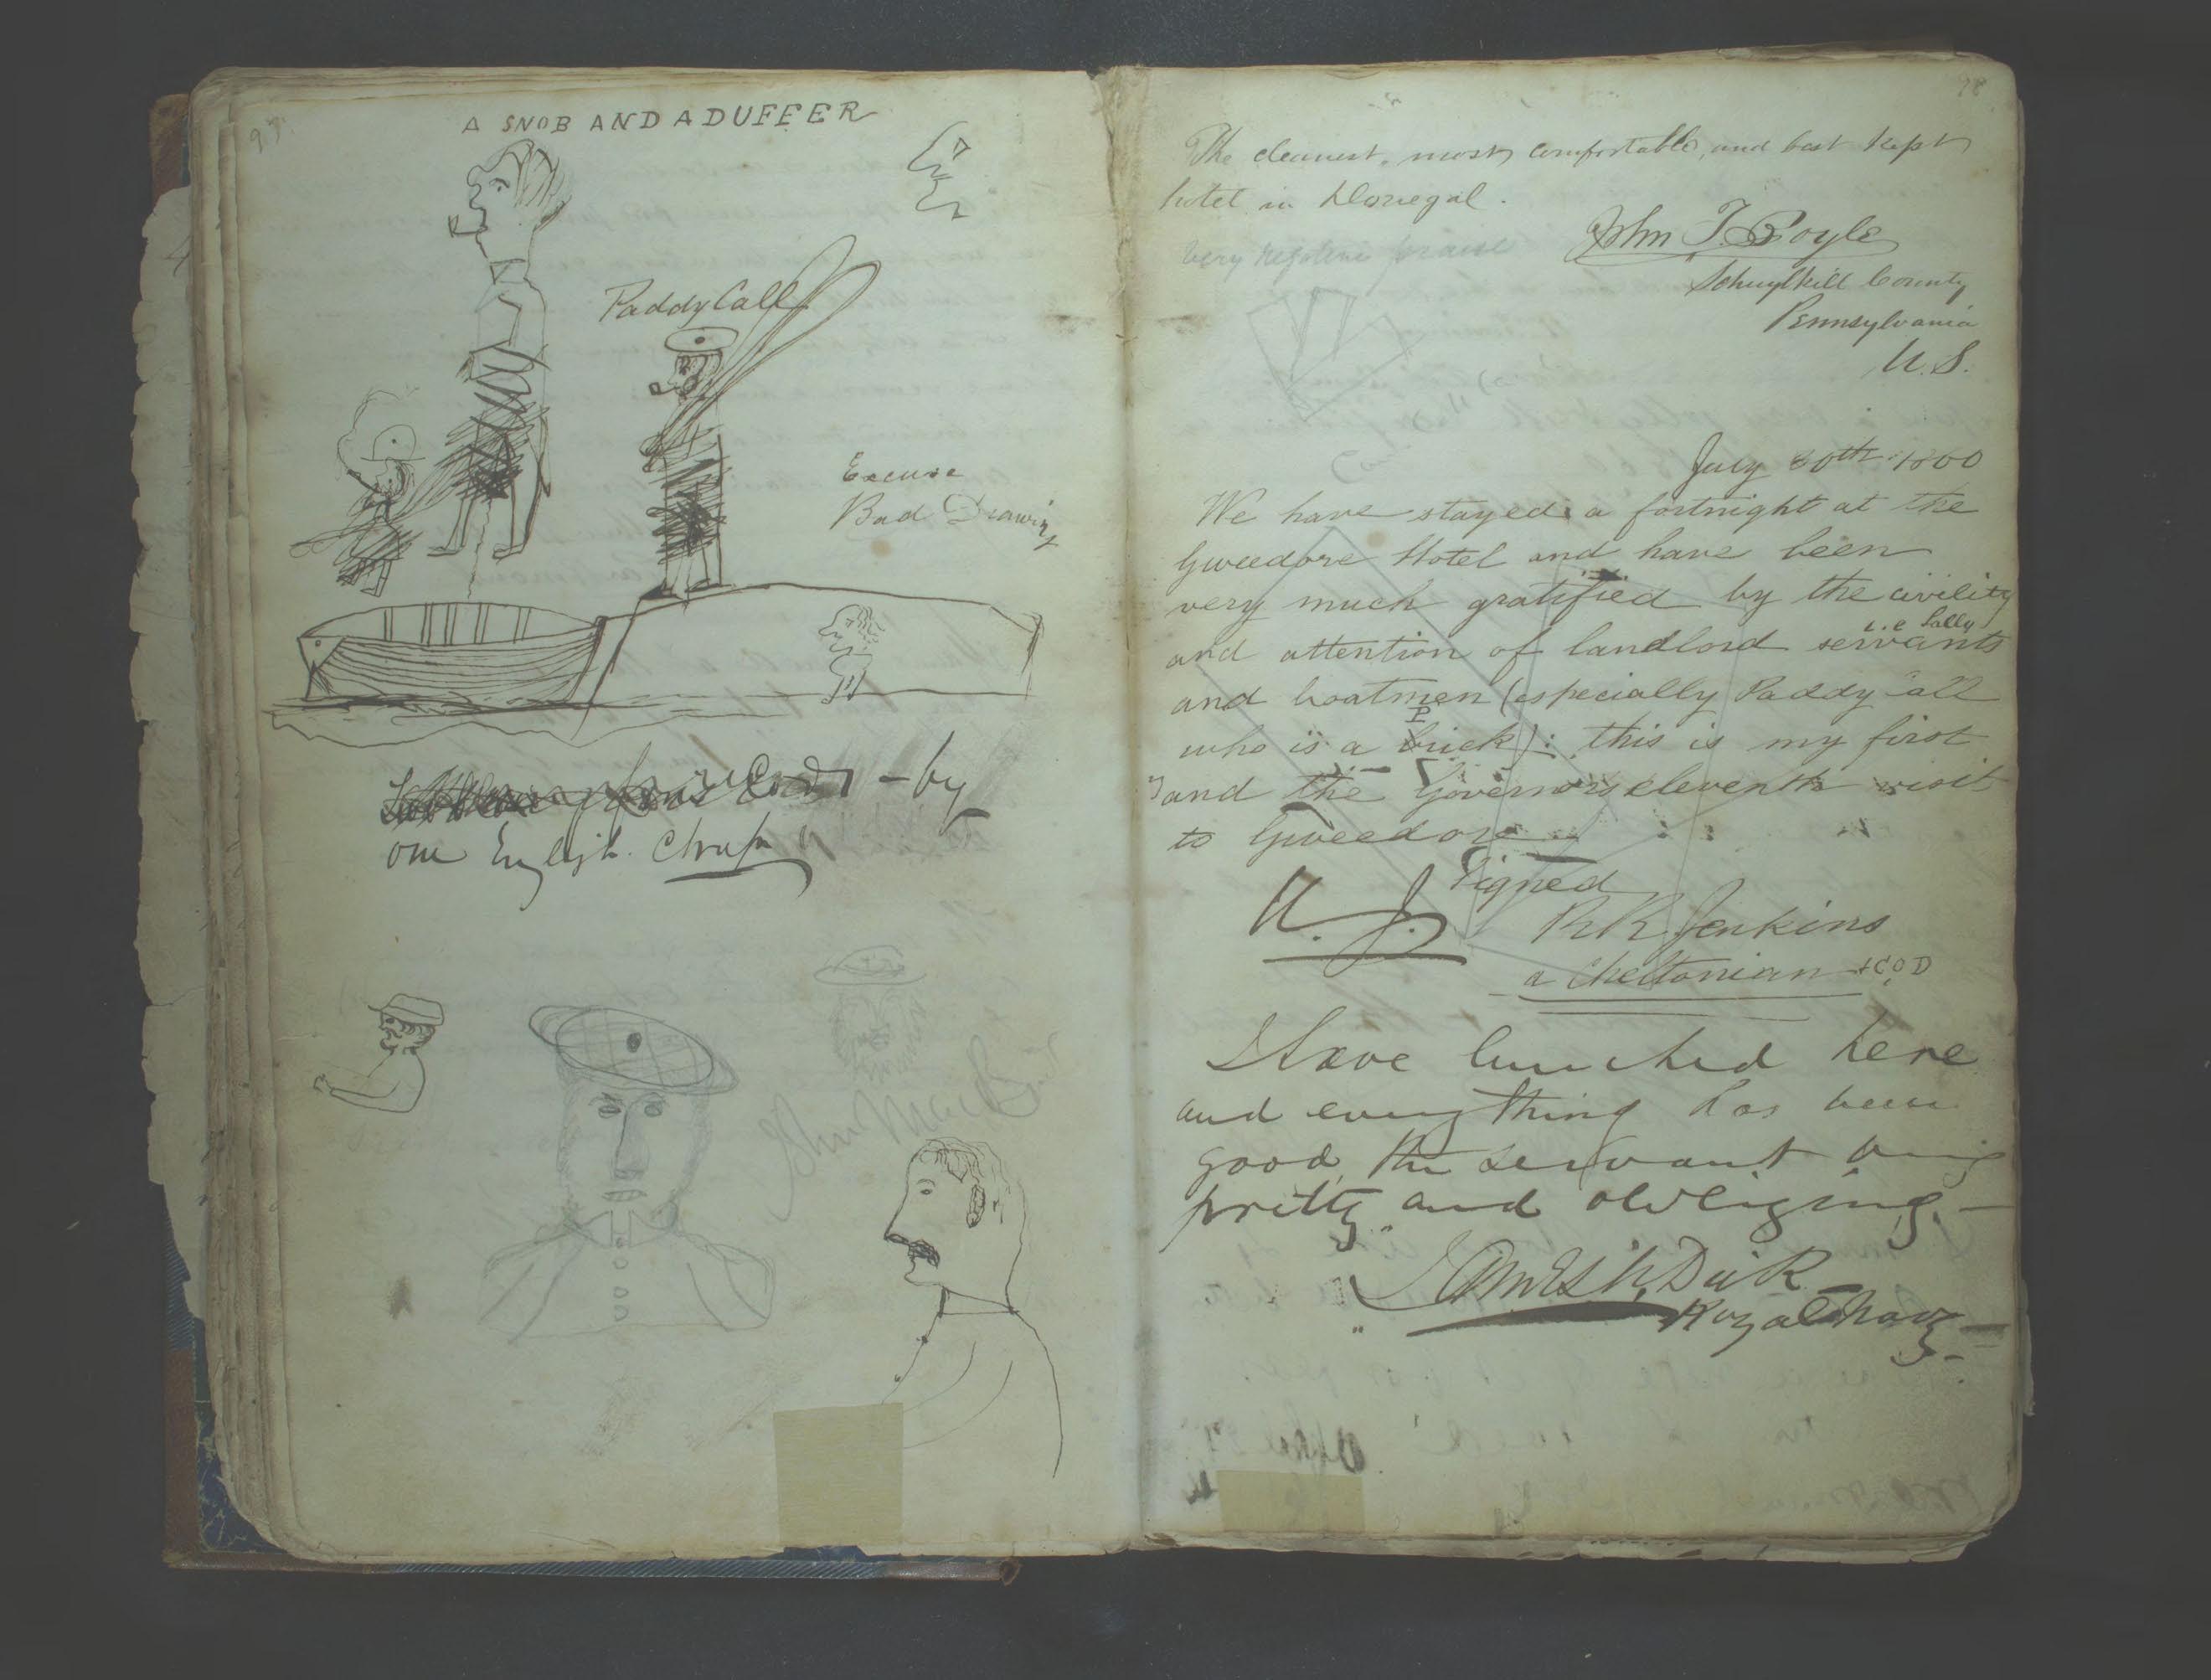 97.
A SNOB AND A DUFFER
Paddy Call
Excuse
Bad Drawing
- by
one English Chap
John Mac
98
The cleanest, most comfortable, and best kept
hotel in Donegal.
very negative praise
John T. Boyle
Schuylkill County
Pennsylvania
U.S.
July 30th 1860
We have stayed a fortnight at the
Gweedore Hotel and have been
very much gratified by the civility
i.e Sally
and attention of landlord servants
and boatmen (especially Paddy Call
P
who is a brick): this is my first
and the Governors eleventh visit
to Gweedore
Signed
R R. Jenkins
a Cheltonian
I have lunched here
and everything has been
good, the servant being
pretty and obliging. -
James h. Dick
Royal Navy -